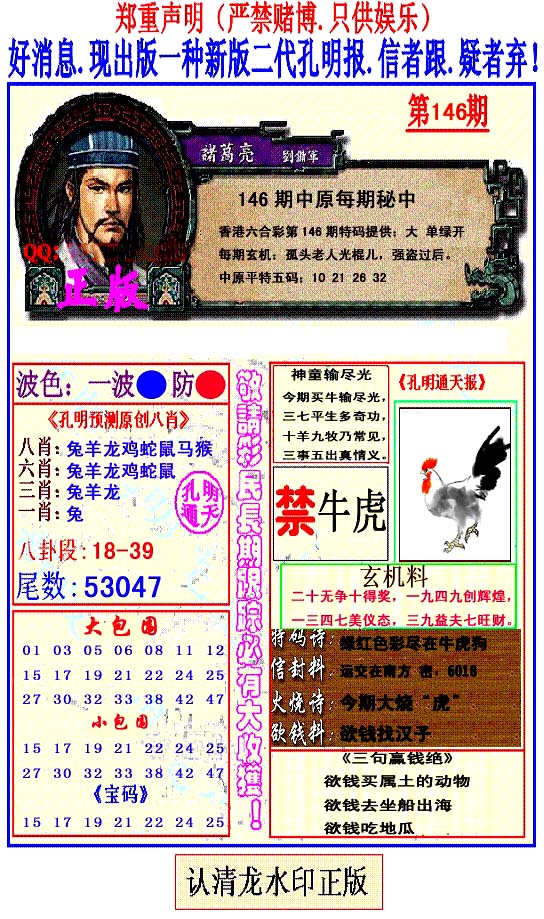 郑重声明（严禁赌博.只供娱乐）
好消息.现出版一种新版二代孔明报.信者跟.疑者弃！
第146期
諸葛亮 劉備軍
146期中原每期秘中
香港六合彩第146期特码提供：大 单绿开
每期玄机：孤头老人光棍儿，强盗过后。
中原平特五码：10 21 26 32
QQ:
正版
波色：一波 防
《孔明预测原创八肖》
八肖：兔羊龙鸡蛇鼠马猴
六肖：兔羊龙鸡蛇鼠
三肖：兔羊龙
一肖：兔
孔明
通天
八卦段：18-39
尾数：53047
大包围
01 03 05 06 08 11 12
15 17 19 21 22 24 25
27 30 32 33 38 42 47
小包围
15 17 19 21 22 24 25
27 30 32 33 38 42 47
《宝码》
15 17 19 21 22 24 25
敬請彩民長期跟踪必有大收獲！
神童输尽光
今期买牛输尽光，
三七平生多奇功，
十羊九牧乃常见，
三事五出真情义。
《孔明通天报》
禁牛虎
玄机料
二十无争十得奖，一九四九创辉煌，
一三四七美仪态，三九益夫七旺财。
特码诗：绿红色彩尽在牛虎狗
信封料：运交在南方 密，6018
火烧诗：今期大烧“虎”
欲钱料：欲钱找汉子
《三句赢钱绝》
欲钱买属土的动物
欲钱去坐船出海
欲钱吃地瓜
认清龙水印正版